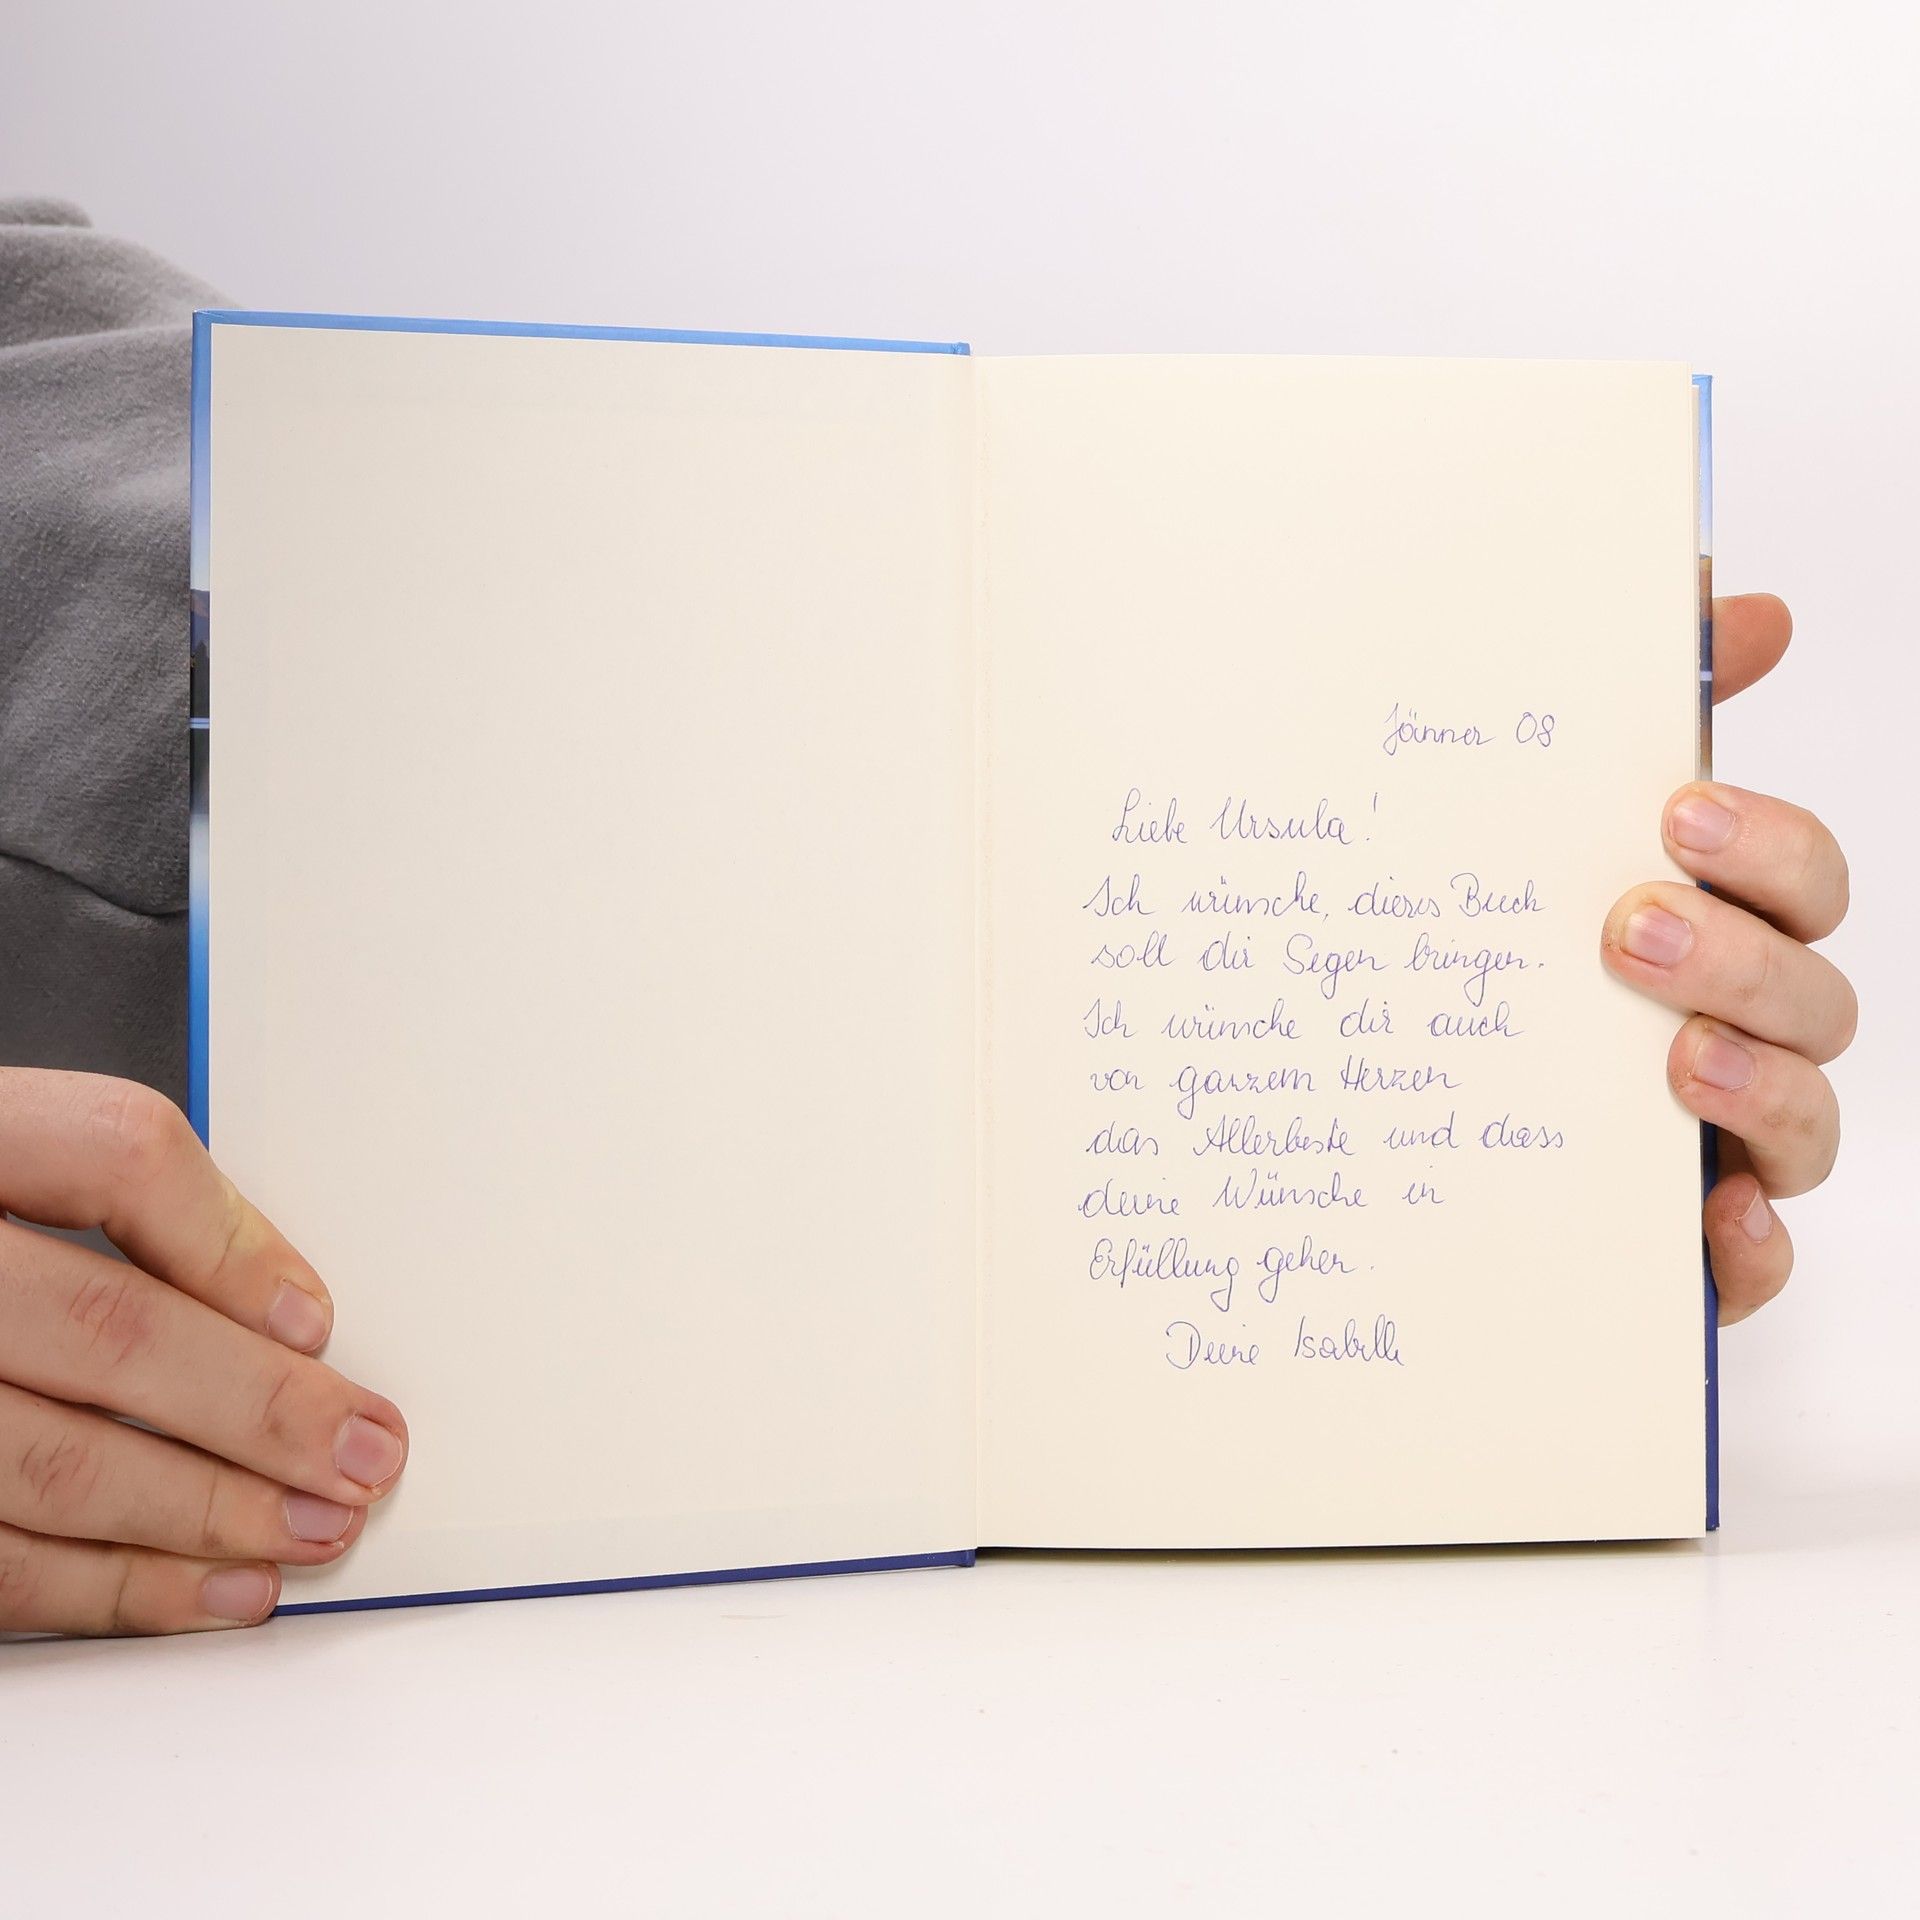 Jänner 08
Liebe Ursula!
Ich wünsche, dieses Buch
soll dir Segen bringen.
Ich wünsche dir auch
von ganzem Herzen
das Allerbeste und dass
deine Wünsche in
Erfüllung gehen.
Deine Isabelle